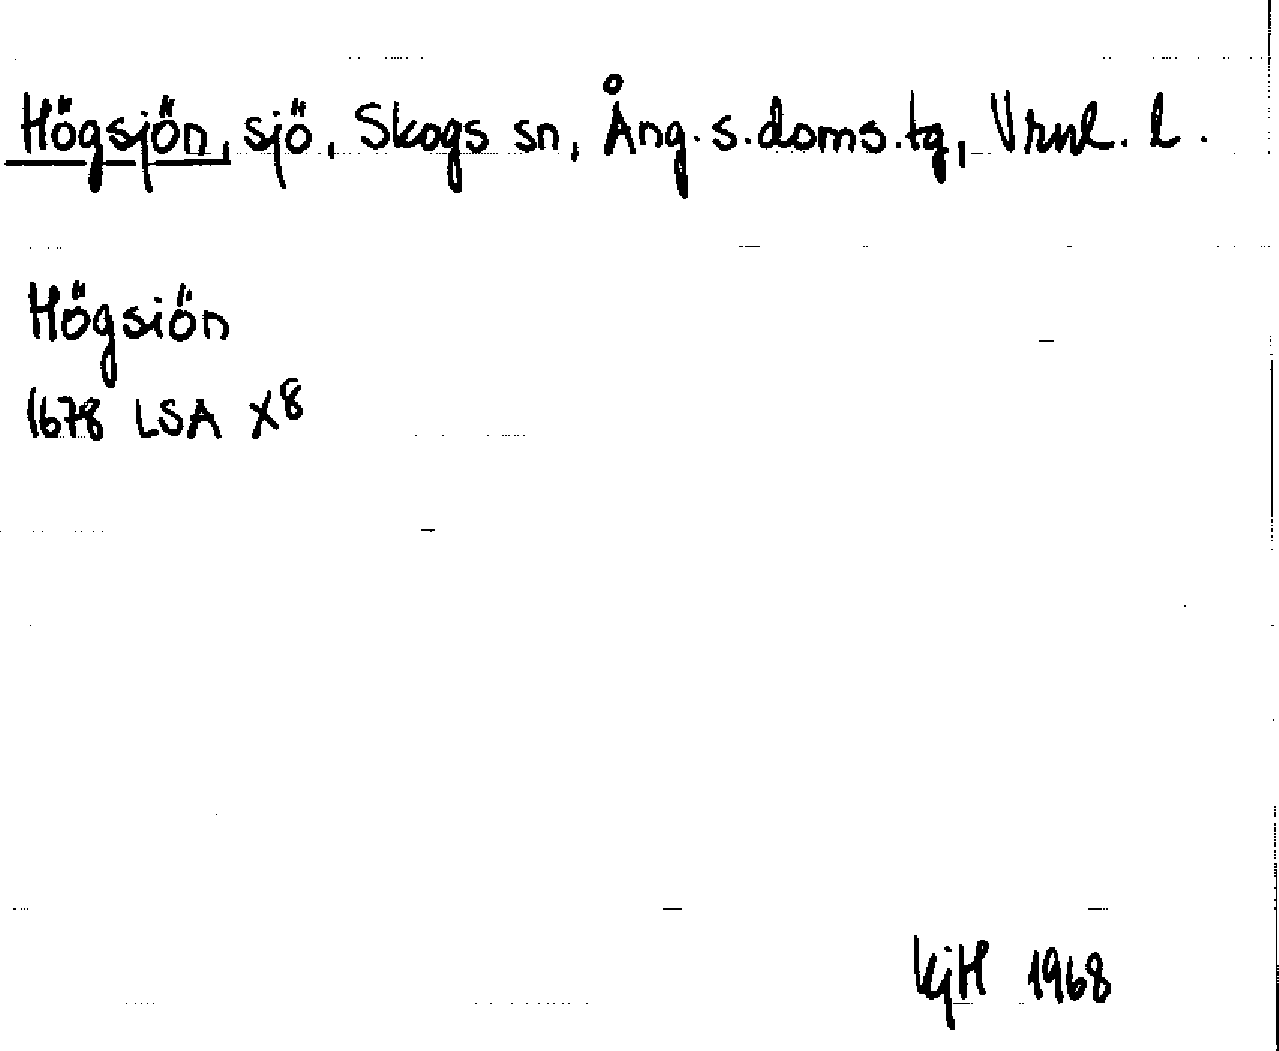 Högsjön, sjö, Skogs sn, Ång. s. doms. tg, Vrnl. l.
Högsiön
1678 LSA X8
KjH 1968